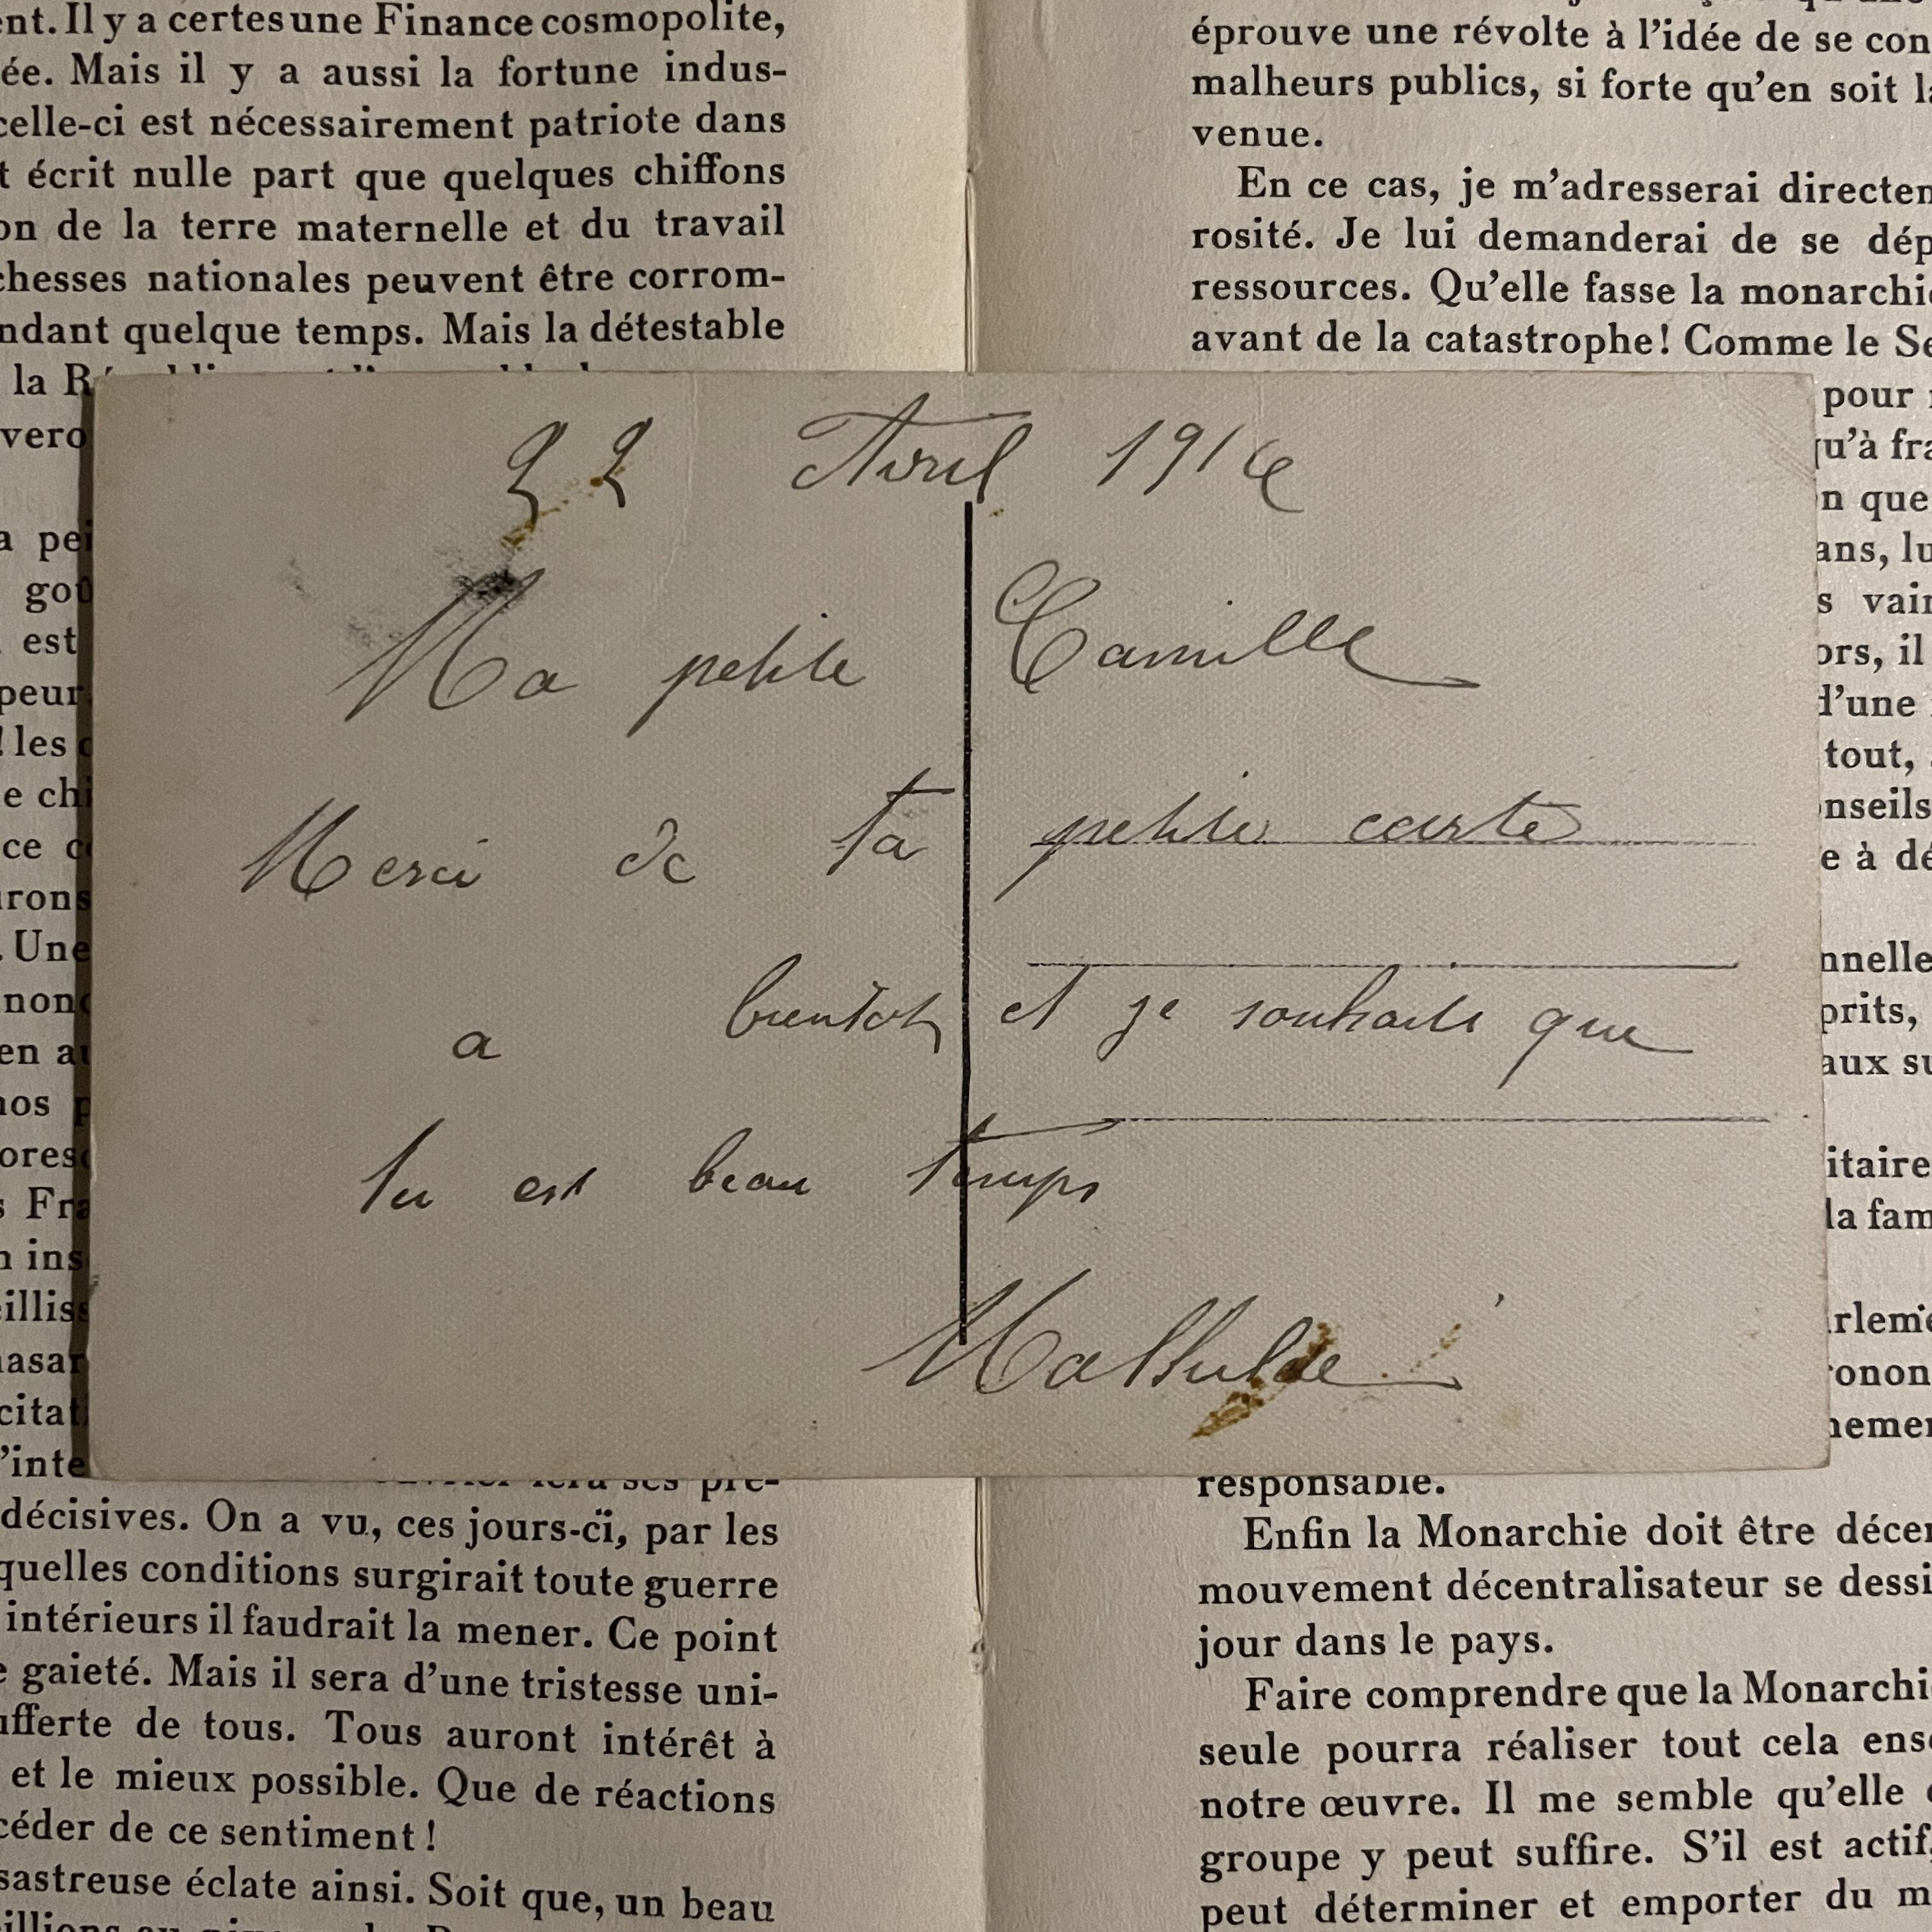 ent. Il y a certes une Finance cosmopolite,
ée. Mais il y a aussi la fortune indus-
celle-ci est nécessairement patriote dans
t écrit nulle part que quelques chiffons
on de la terre maternelle et du travail
chesses nationales peuvent être corrom-
ndant quelque temps. Mais la détestable
la
vero
a pei
goû
est
peur
! les
e chi
ce
urons
. Une
nonc
en au
nos p
ores
s Fra
n ins
eilliss
hasar
citat
l'inte
pré-
décisives. On a vu, ces jours-ci, par les
quelles conditions surgirait toute guerre
intérieurs il faudrait la mener. Ce point
e gaieté. Mais il sera d'une tristesse uni-
ufferte de tous. Tous auront intérêt à
et le mieux possible. Que de réactions
céder de ce sentiment !
sastreuse éclate ainsi. Soit que, un beau
22 Avril 1916
Ma petite Camille
Merci de ta petite carte
a bientot et je souhaite que
tu est beau temps
Mathilde
éprouve une révolte à l'idée de se con
malheurs publics, si forte qu'en soit la
venue.
En ce cas, je m'adresserai directem
rosité. Je lui demanderai de se dép
ressources. Qu'elle fasse la monarchie
avant de la catastrophe! Comme le Se
pour
qu'à fra
n que
ans, lu
s vain
ors, il
d'une
tout,
onseils
e à dé
nnelle
prits,
aux su
itaire
la fam
rleme
onon
nemen
responsable.
Enfin la Monarchie doit être décen
mouvement décentralisateur se dessi
jour dans le pays.
Faire comprendre que la Monarchi
seule pourra réaliser tout cela ense
notre œuvre. Il me semble qu'elle
groupe y peut suffire. S'il est actif,
peut déterminer et emporter du m